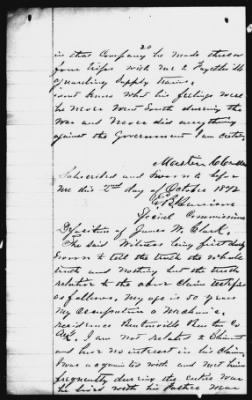 20
in that Company he made three or
four trips with me to Fayetteville
guarding Supply trains,
I dont know what his feelings were
he never went South during the
war and never did anything
against the Government I am certain.
Martin
Subscribed and Sworn to before
me this 2nd day of October 1872
E B Harrison
Special Commissioner
Deposition of James W. Clark.
The said Witness being first duly
Sworn to tell the truth the whole
truth and nothing but the truth
relative to the above Claim testifies
as follows, my age is 50 years
my Occupation a Mechanic,
residence Bentonville Benton Co
Ark. I am not related to Claimant
and have no interest in his Claim,
I was acquainted with and met him
frequently during the entire war
he lived with his Father near